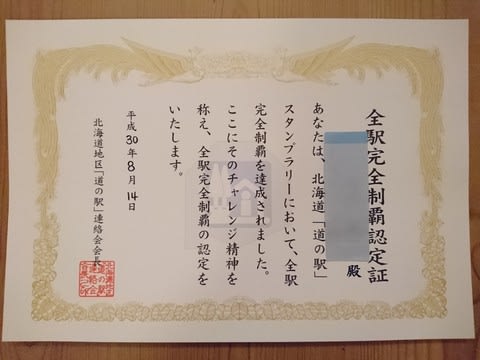 全駅完全制覇認定証
殿
あなたは、北海道「道の駅」
スタンプラリーにおいて、全駅
完全制覇を達成されました。
ここにそのチャレンジ精神を
称え、全駅完全制覇の認定を
いたします。
平成30年8月14日
北海道地区「道の駅」連絡会会長